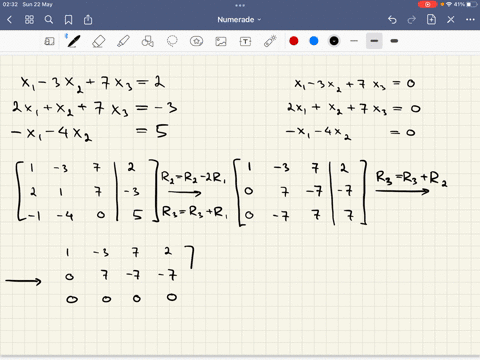 02:32 Sun 22 May 41%
Numerade
x₁ - 3x₂ + 7x₃ = 2
2x₁ + x₂ + 7x₃ = -3
-x₁ - 4x₂ = 5
x₁ - 3x₂ + 7x₃ = 0
2x₁ + x₂ + 7x₃ = 0
-x₁ - 4x₂ = 0
[1 -3 7 | 2
2 1 7 | -3
-1 -4 0 | 5]
R₂ = R₂ - 2R₁
→
R₃ = R₃ + R₁
[1 -3 7 | 2
0 7 -7 | -7
0 -7 7 | 7]
R₃ = R₃ + R₂
→
→
1 -3 7 2 ]
0 7 -7 -7
0 0 0 0